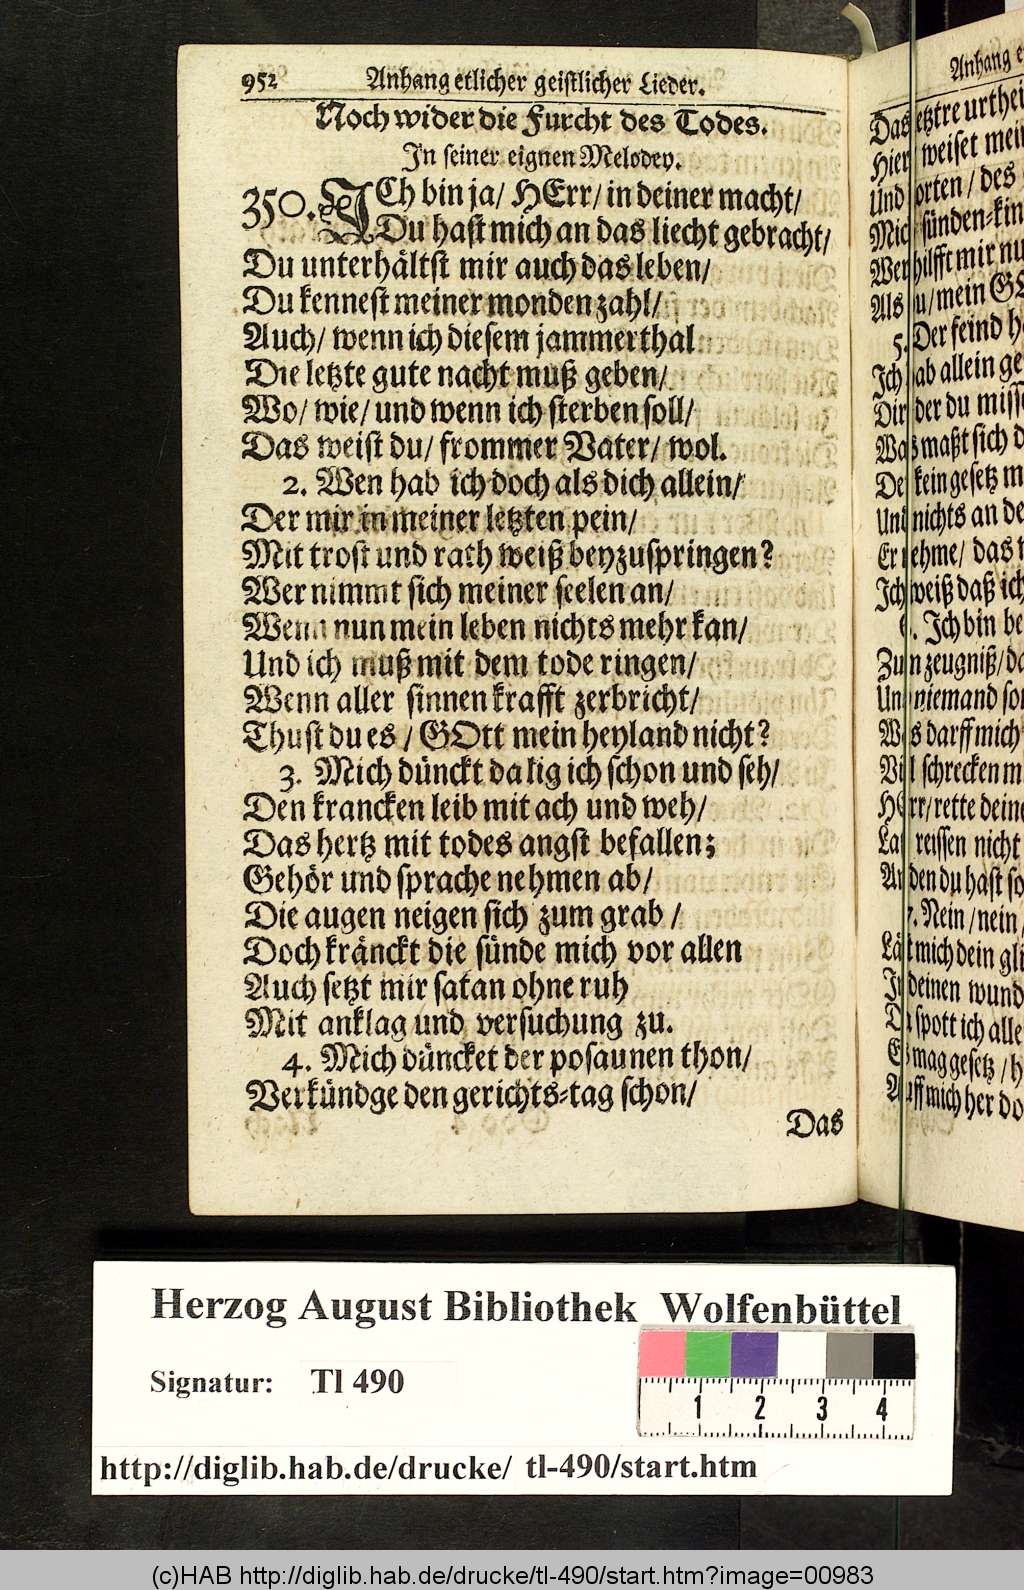 952 Anhang etlicher geistlicher Lieder.
Noch wider die Furcht des Todes.
In seiner eignen Melodey.
350. ICh bin ja/ HErr/ in deiner macht/
Du hast mich an das liecht gebracht/
Du unterhältst mir auch das leben/
Du kennest meiner monden zahl/
Auch/ wenn ich diesem jammerthal
Die letzte gute nacht muß geben/
Wo/ wie/ und wenn ich sterben soll/
Das weist du/ frommer Vater/ wol.
2. Wen hab ich doch als dich allein/
Der mir in meiner letzten pein/
Mit trost und rath weiß beyzuspringen?
Wer nimmt sich meiner seelen an/
Wenn nun mein leben nichts mehr kan/
Und ich muß mit dem tode ringen/
Wenn aller sinnen krafft zerbricht/
Thust du es/ GOtt mein heyland nicht?
3. Mich dünckt da lig ich schon und seh/
Den krancken leib mit ach und weh/
Das hertz mit todes angst befallen;
Gehör und sprache nehmen ab/
Die augen neigen sich zum grab/
Doch kränckt die sünde mich vor allen
Auch setzt mir satan ohne ruh
Mit anklag und versuchung zu.
4. Mich düncket der posaunen thon/
Verkündge den gerichts-tag schon/
Das
Anhang
Das letztre
Hier weiset
Und
sünden-kin
hilfft mir nu
Als du/ mein
5. Der feind
Ich hab allein
Dir der du
Was maßt sich
kein gesetz
Und nichts an
Er nehme/ das
Ich weiß daß ich
6. Ich bin
Zum zeugniß/
Und niemand
Was darff mich
Viel schrecken
HErr/ rette deine
Laß reissen nicht
Den du hast
7. Nein/ nein/
Läst mich dein
In deinen
Da spott ich alle
Es mag gesetz/
Auff mich her
Herzog August Bibliothek Wolfenbüttel
Signatur: Tl 490
1 2 3 4
http://diglib.hab.de/drucke/ tl-490/start.htm
(c)HAB http://diglib.hab.de/drucke/tl-490/start.htm?image=00983